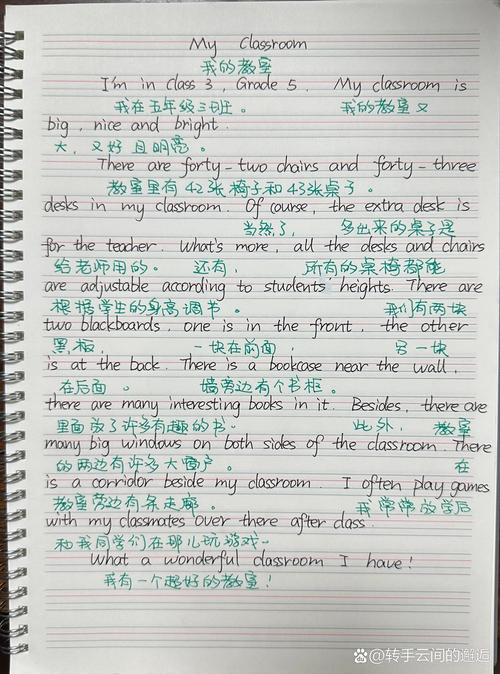 My Classroom
我的教室
I'm in Class 3, Grade 5. My classroom is
我在五年级三班。 我的教室又
big, nice and bright.
大,又好且明亮。
There are forty-two chairs and forty-three
教室里有42张椅子和43张桌子。
desks in my classroom. Of course, the extra desk is
当然了, 多出来的桌子是
for the teacher. What's more, all the desks and chairs
给老师用的。 还有, 所有的桌椅都能
are adjustable according to students' heights. There are
根据学生的身高调节。 我们有两块
two blackboards, one is in the front, the other
黑板, 一块在前面, 另一块
is at the back. There is a bookcase near the wall,
在后面。 墙旁边有个书柜。
there are many interesting books in it. Besides, there are
里面放了许多有趣的书。 此外, 教室
many big windows on both sides of the classroom. There
的两边有许多大窗户。 在
is a corridor beside my classroom. I often play games
教室旁边有条走廊。 我常常放学后
with my classmates over there after class.
和我同学们在那儿玩游戏。
What a wonderful classroom I have!
我有一个超好的教室!
Bai 知道@转手云间的邂逅